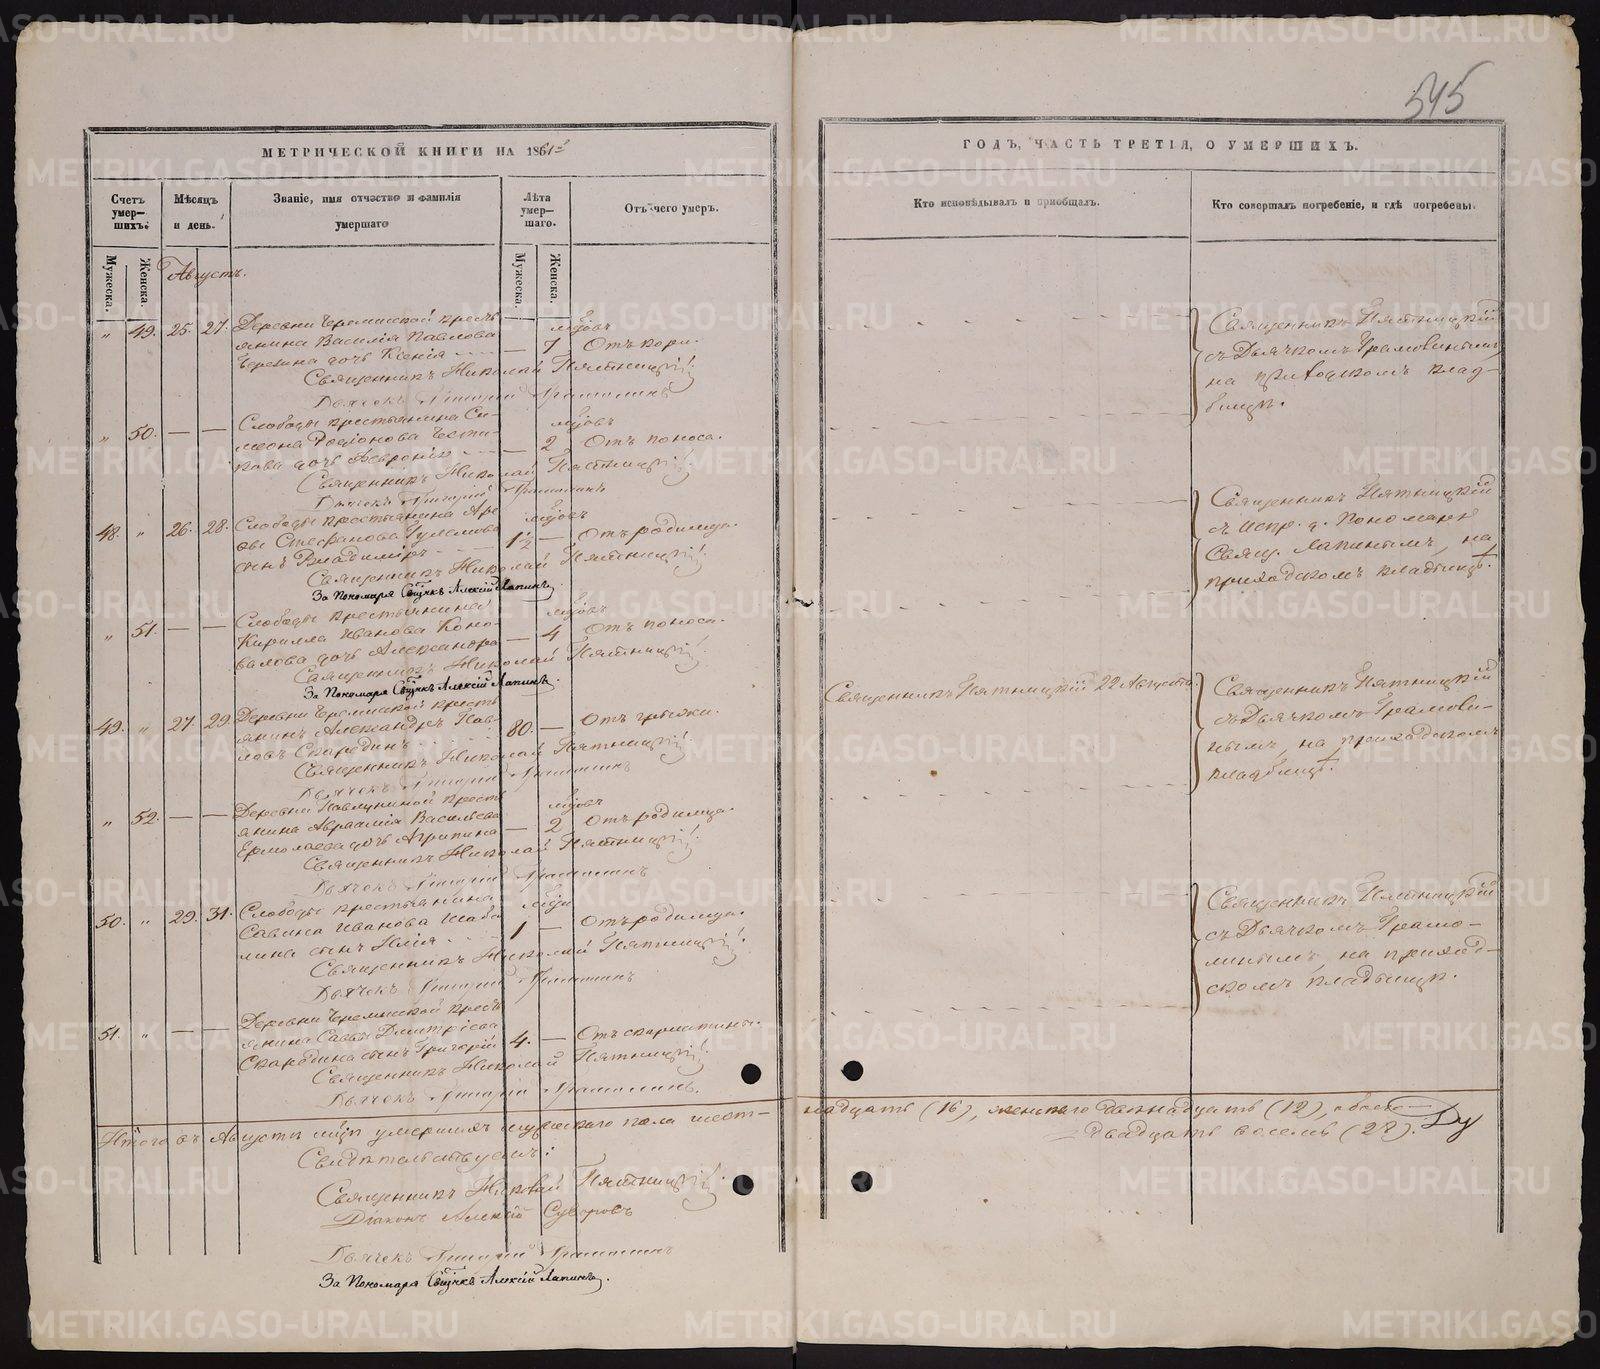 545
МЕТРИЧЕСКОЙ КНИГИ НА 1861й
ГОДЪ, ЧАСТЬ ТРЕТІЯ, О УМЕРШИХЪ.
Счетъ умер–шихъ.
Мѣсяцъ и день.
Званіе, имя отчество и фамилія умершаго
Лѣта умер–шаго.
Отъ чего умеръ.
Кто исповѣдывалъ и пріобщалъ.
Кто совершалъ погребеніе, и гдѣ погребены.
Мужеска. Женска.
Мужеска. Женска.
Августъ.
„ 49. 25. 27. Деревни Череминской кресть
янина Василія Павлова
дочь Ксенія — 7 Отъ кори.
Священникъ Николай Пятницкій
Дьячекъ Григорій
Священникъ Пятницкій
съ Дьячкомъ
на приходскомъ клад–
бищѣ.
„ 50. — — Слободы крестьянина Си–
меона Родіонова
кова дочь Февронія — 2 Отъ поноса.
Священникъ Николай Пятницкій
Дьячекъ Григорій
48. „ 26. 28. Слободы крестьянина
Стефанова
сынъ Владиміръ 1½ — Отъ родимца.
Священникъ Николай Пятницкій
За Пономаря Алексій Лапинъ.
Священникъ Пятницкій
съ испр. д. Пономаря
Свящ. Лапинымъ, на
приходскомъ кладбищѣ.
„ 51. — — Слободы крестьянина
Кирилла Иванова Коно–
валова дочь Александра — 4 Отъ поноса.
Священникъ Николай Пятницкій
За Пономаря Алексій Лапинъ.
49. „ 27. 29. Деревни Череминской кресть
янинъ Александръ Пав–
ловъ Скарединъ 80. — Отъ грыжи.
Священникъ Николай Пятницкій
Дьячекъ Григорій
Священникъ Пятницкій 22 Августа
Священникъ Пятницкій
съ Дьячкомъ
на приходскомъ
кладбищѣ.
„ 52. — — Деревни кресть
янина Авраамія Васильева
Ермолаева дочь Агрипина — 2 Отъ родимца.
Священникъ Николай Пятницкій
Дьячекъ Григорій
50. „ 29. 31. Слободы крестьянина
Саввина Иванова Шаба
лина сынъ Илія 1 — Отъ родимца.
Священникъ Николай Пятницкій
Дьячекъ Григорій
Священникъ Пятницкій
съ Дьячкомъ
на приход–
скомъ кладбищѣ.
51. „ — — Деревни Череминской кресть
янина Саввы Дмитріева
Скаредина сынъ Григорій 4. — Отъ скарлатины.
Священникъ Николай Пятницкій
Дьячекъ Григорій
Итого въ Августѣ мцѣ умершихъ мужескаго пола шест–надцать (16), женскаго двѣнадцать (12), обоего
двадцать восемь (28).
Свидѣтельствуемъ:
Священникъ Николай Пятницкій
Діаконъ Алексій Суворовъ
Дьячекъ Григорій
За Пономаря Алексій Лапинъ.
METRIKI.GASO-URAL.RU